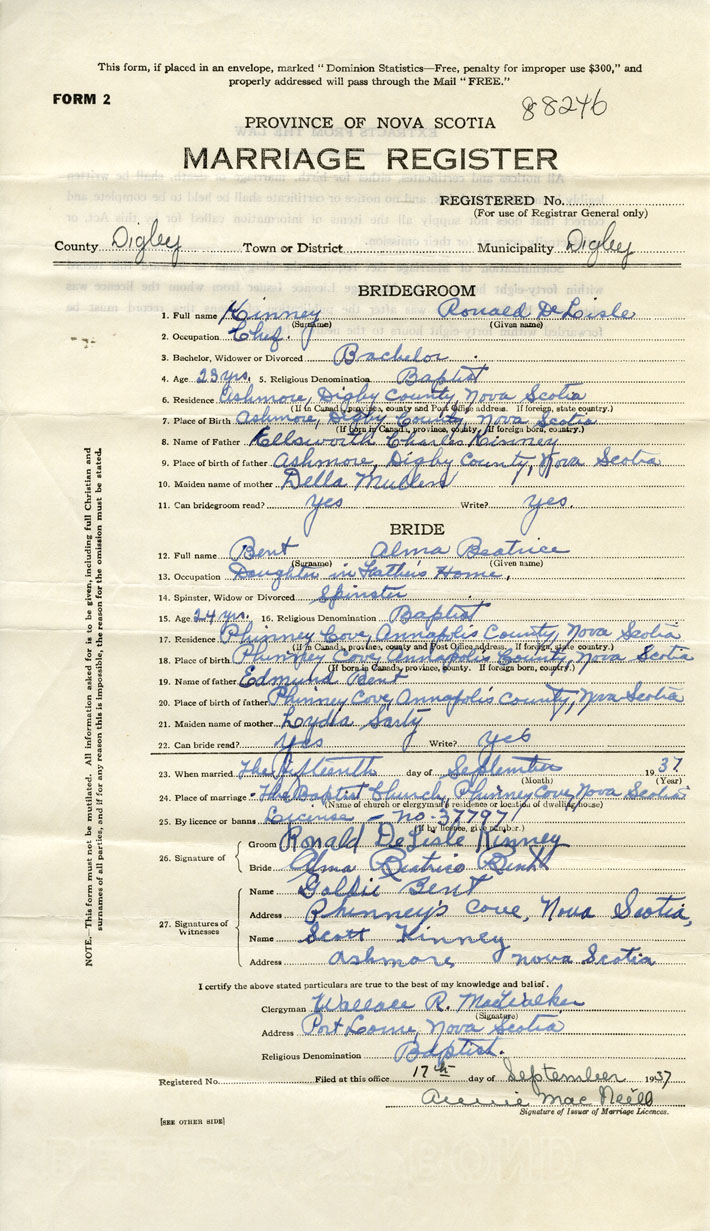 This form, if placed in an envelope, marked "Dominion Statistics—Free, penalty for improper use $300," and
properly addressed will pass through the Mail "FREE."
FORM 2
88246
PROVINCE OF NOVA SCOTIA
MARRIAGE REGISTER
REGISTERED No.
(For use of Registrar General only)
County Digby Town or District Municipality Digby
BRIDEGROOM
1. Full name Kinney Ronald DeLisle
(Surname) (Given name)
2. Occupation Chef.
3. Bachelor, Widower or Divorced Bachelor.
4. Age 23 yrs. 5. Religious Denomination Baptist
6. Residence Ashmore, Digby County, Nova Scotia
(If in Canada, province, county and Post Office address. If foreign, state country.)
7. Place of Birth Ashmore, Digby County, Nova Scotia
(If born in Canada, province, county. If foreign born, country.)
8. Name of Father Ellsworth Charles Kinney
9. Place of birth of father Ashmore, Digby County, Nova Scotia
10. Maiden name of mother Della Mullen
11. Can bridegroom read? yes Write? yes.
BRIDE
12. Full name Bent Alma Beatrice
(Surname) (Given name)
13. Occupation Daughter in Father's Home,
14. Spinster, Widow or Divorced Spinster
15. Age 24 yrs. 16. Religious Denomination Baptist
17. Residence Phinney Cove, Annapolis County, Nova Scotia
(If in Canada, province, county and Post Office address. If foreign, state country.)
18. Place of birth Phinney Cove, Annapolis County, Nova Scotia
(If born in Canada, province, county. If foreign born, country.)
19. Name of father Edmund Bent
20. Place of birth of father Phinney Cove, Annapolis County, Nova Scotia
21. Maiden name of mother Lydia Sarty
22. Can bride read? yes Write? yes
23. When married The fifteenth day of September 1937
(Month) (Year)
24. Place of marriage The Baptist Church, Phinney Cove, Nova Scotia
(Name of church or clergyman's residence or location of dwelling house)
25. By licence or banns License - no. 377971
(If by licence, give number.)
26. Signature of
Groom Ronald DeLisle Kinney
Bride Alma Beatrice Bent
27. Signatures of Witnesses
Name Goldie Bent
Address Phinney's Cove, Nova Scotia,
Name Scott Kinney
Address Ashmore, Nova Scotia
I certify the above stated particulars are true to the best of my knowledge and belief.
Clergyman Wallace R.
(Signature)
Address Port Lorne, Nova Scotia
Religious Denomination Baptist.
Registered No. Filed at this office 17th day of September 1937
Annie MacNeill
Signature of Issuer of Marriage Licences.
[SEE OTHER SIDE]
NOTE.—This form must not be mutilated. All information asked for is to be given, including full Christian and
surnames of all parties, and if for any reason this is impossible, the reason for the omission must be stated.